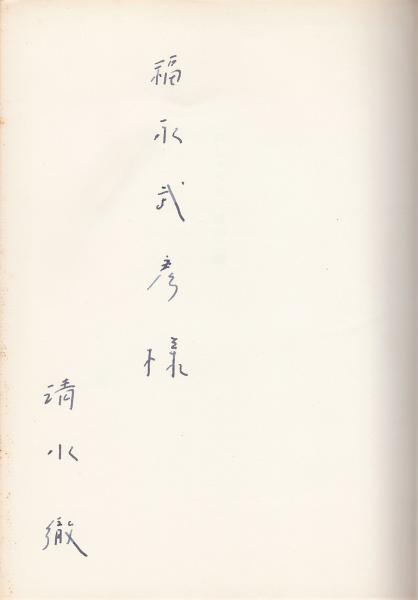 福永武彦様
清水徹